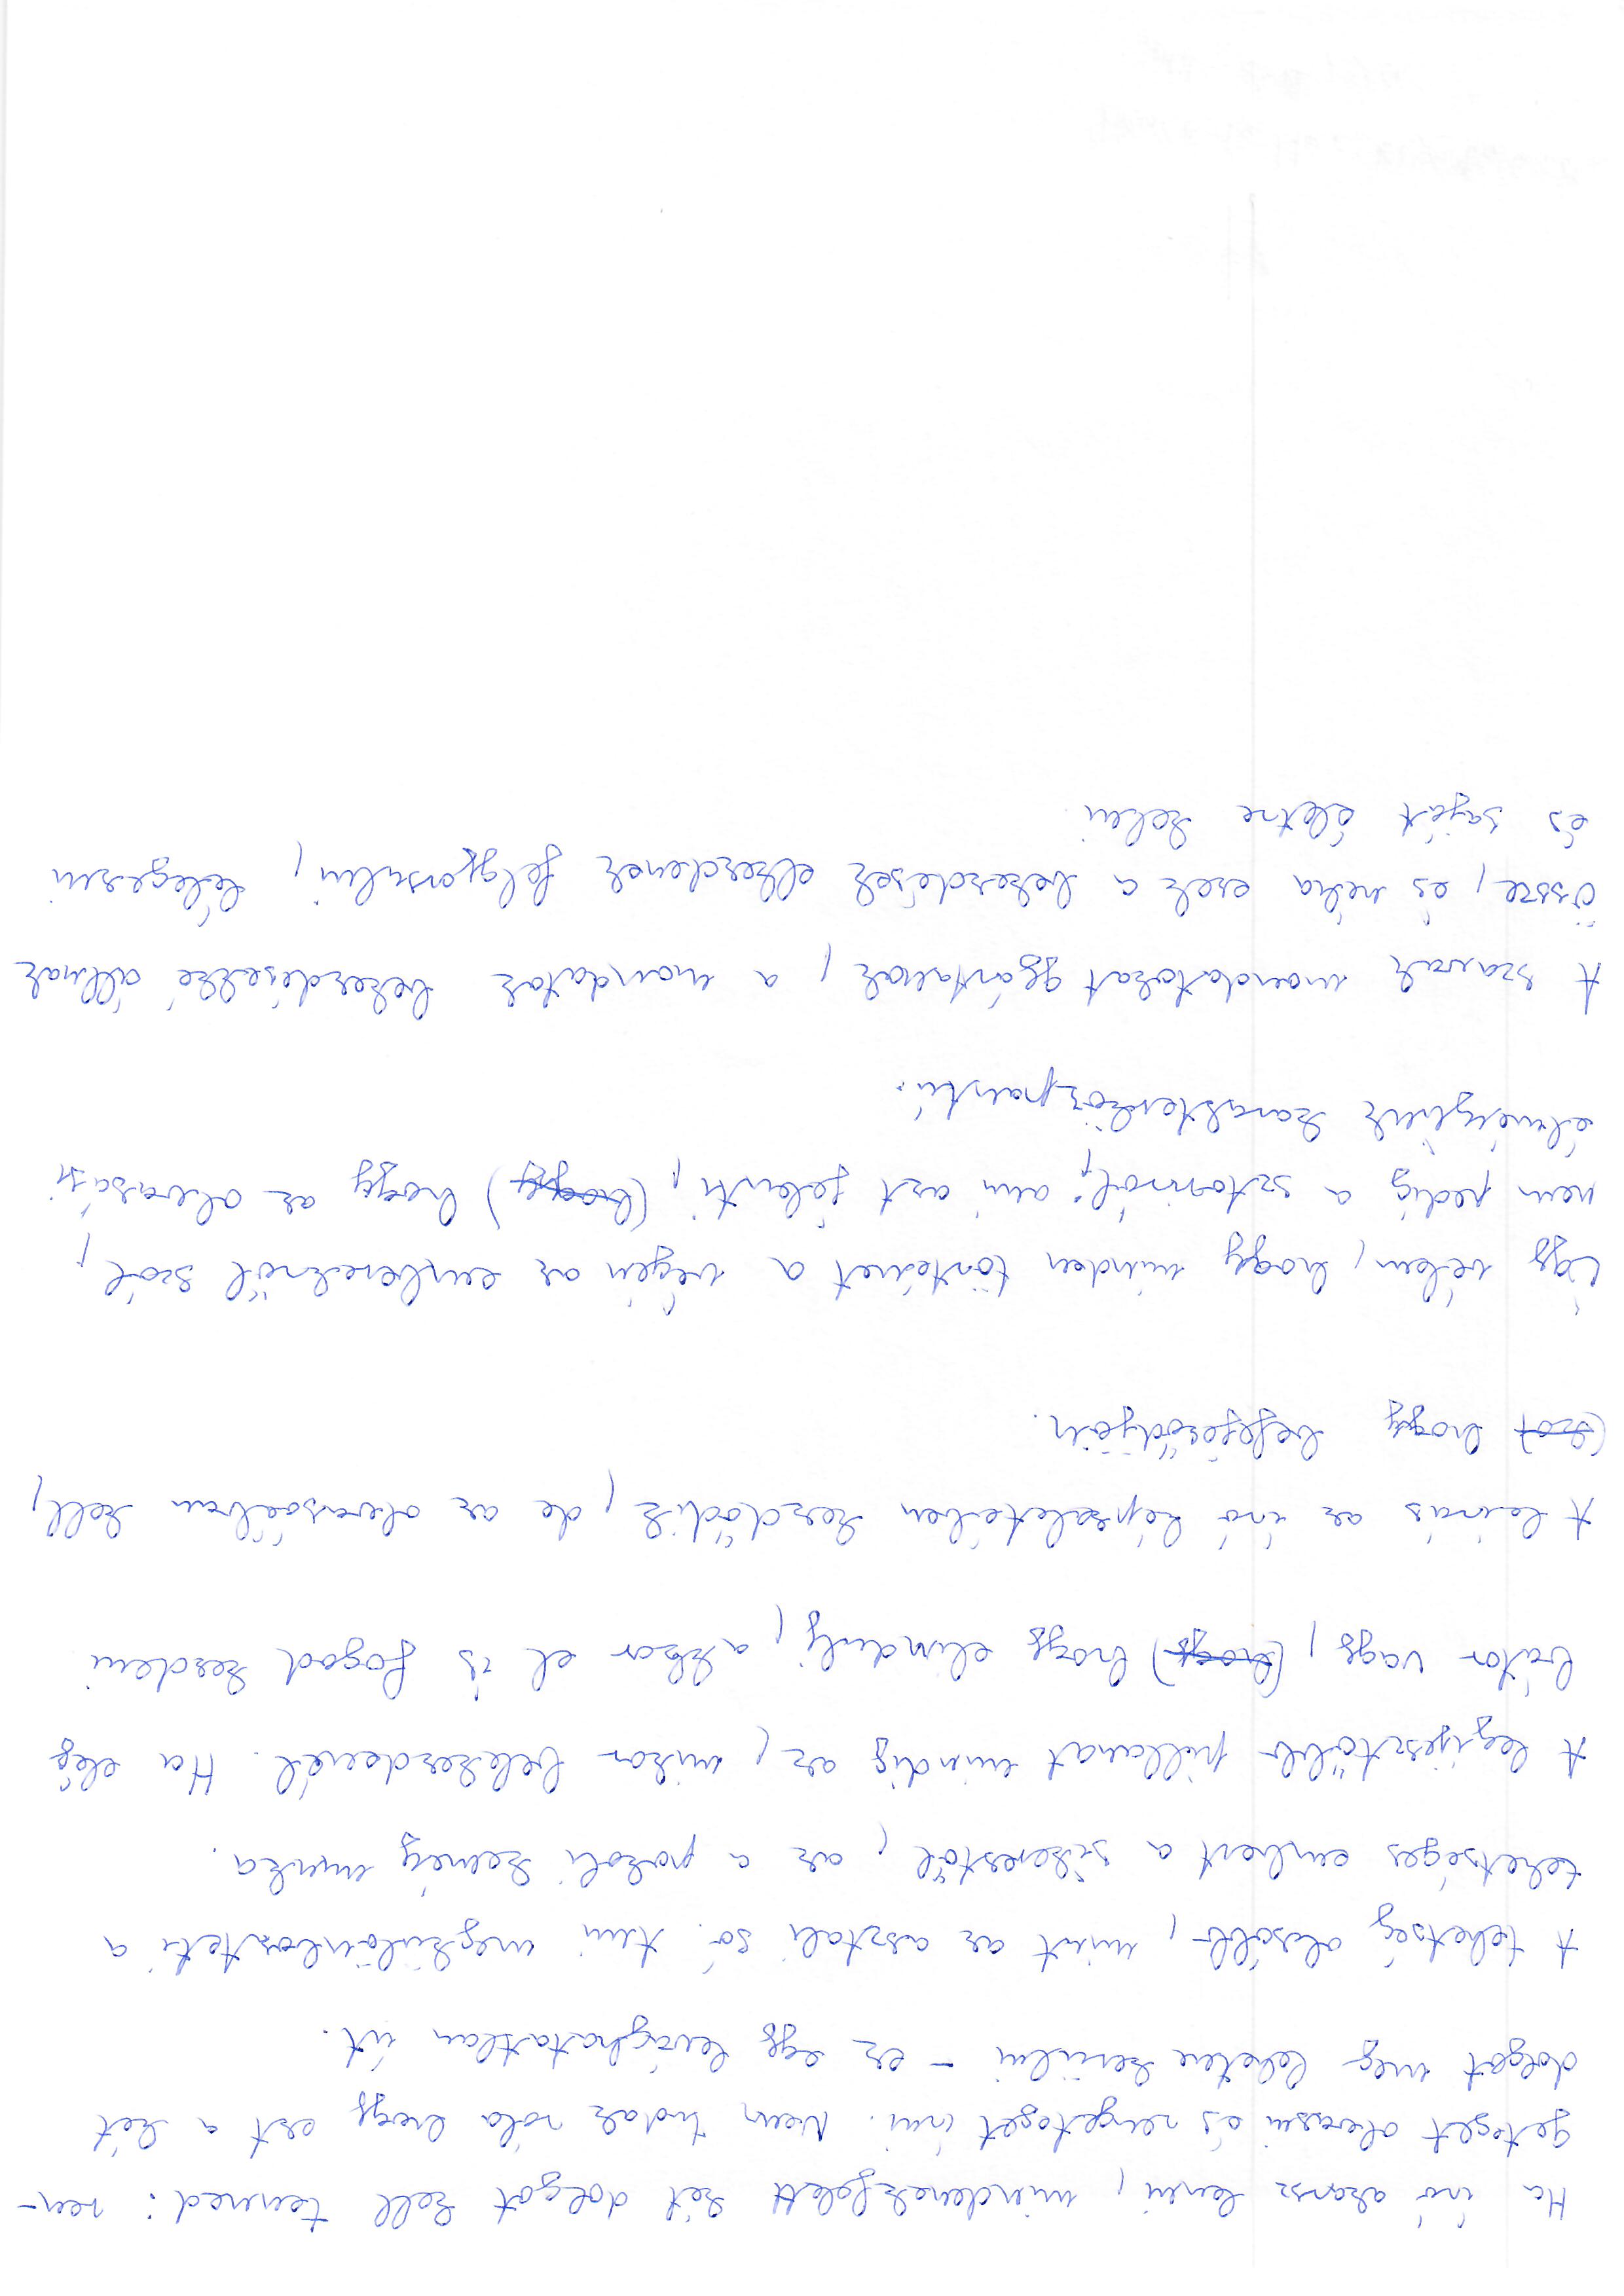 Ha író akarsz lenni, mindenekfelett két dolgot kell tenned: ren-
geteget olvasni és rengeteget írni. Nem tudok róla hogy ezt a két
dolgot meg lehetne kerülni - ez egy levághatatlan út.
A tehetség olcsóbb, mint az asztali só. Ami megkülönbözteti a
tehetséges embert a sikerestől, az a pokoli kemény munka.
A legijesztőbb pillanat mindig az, mikor belekezdenél. Ha elég
bátor vagy, (hogy) hogy elindulj, akkor el is fogod kezdeni
A leírás az író képzeletében kezdődik, de az olvasóéban kell,
(kza) hogy befejeződjön.
Úgy vélem, hogy minden történet a végén az emberekről szól,
nem pedig a sztoriról; ami azt jelenti, (hogy) hogy az olvasási
élményünk karakterközpontú.
A szavak mondatokat gyártanak, a mondatok bekezdésekké állnak
össze, és néha ezek a bekezdések elkezdenek felgyorsulni, lélegezni
és saját életre kelni.